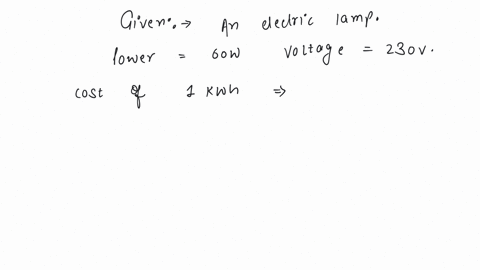 Given:→ An electric lamp.
Power = 60W Voltage = 230V.
cost of 1 kWh ⇒